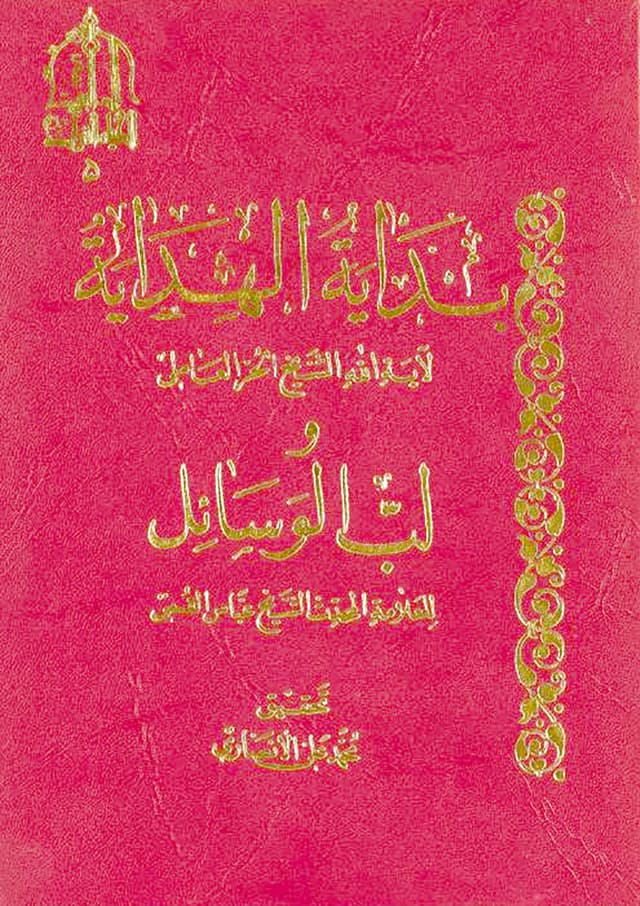 ۵
بِدَايَةُ الْهِدَايَةِ
لآية الله الشيخ الحر العاملي
وَ
لُبُّ الْوَسَائِلِ
للعلامة المحدث الشيخ عباس القمي
تحقيق
محمد علي الأنصاري